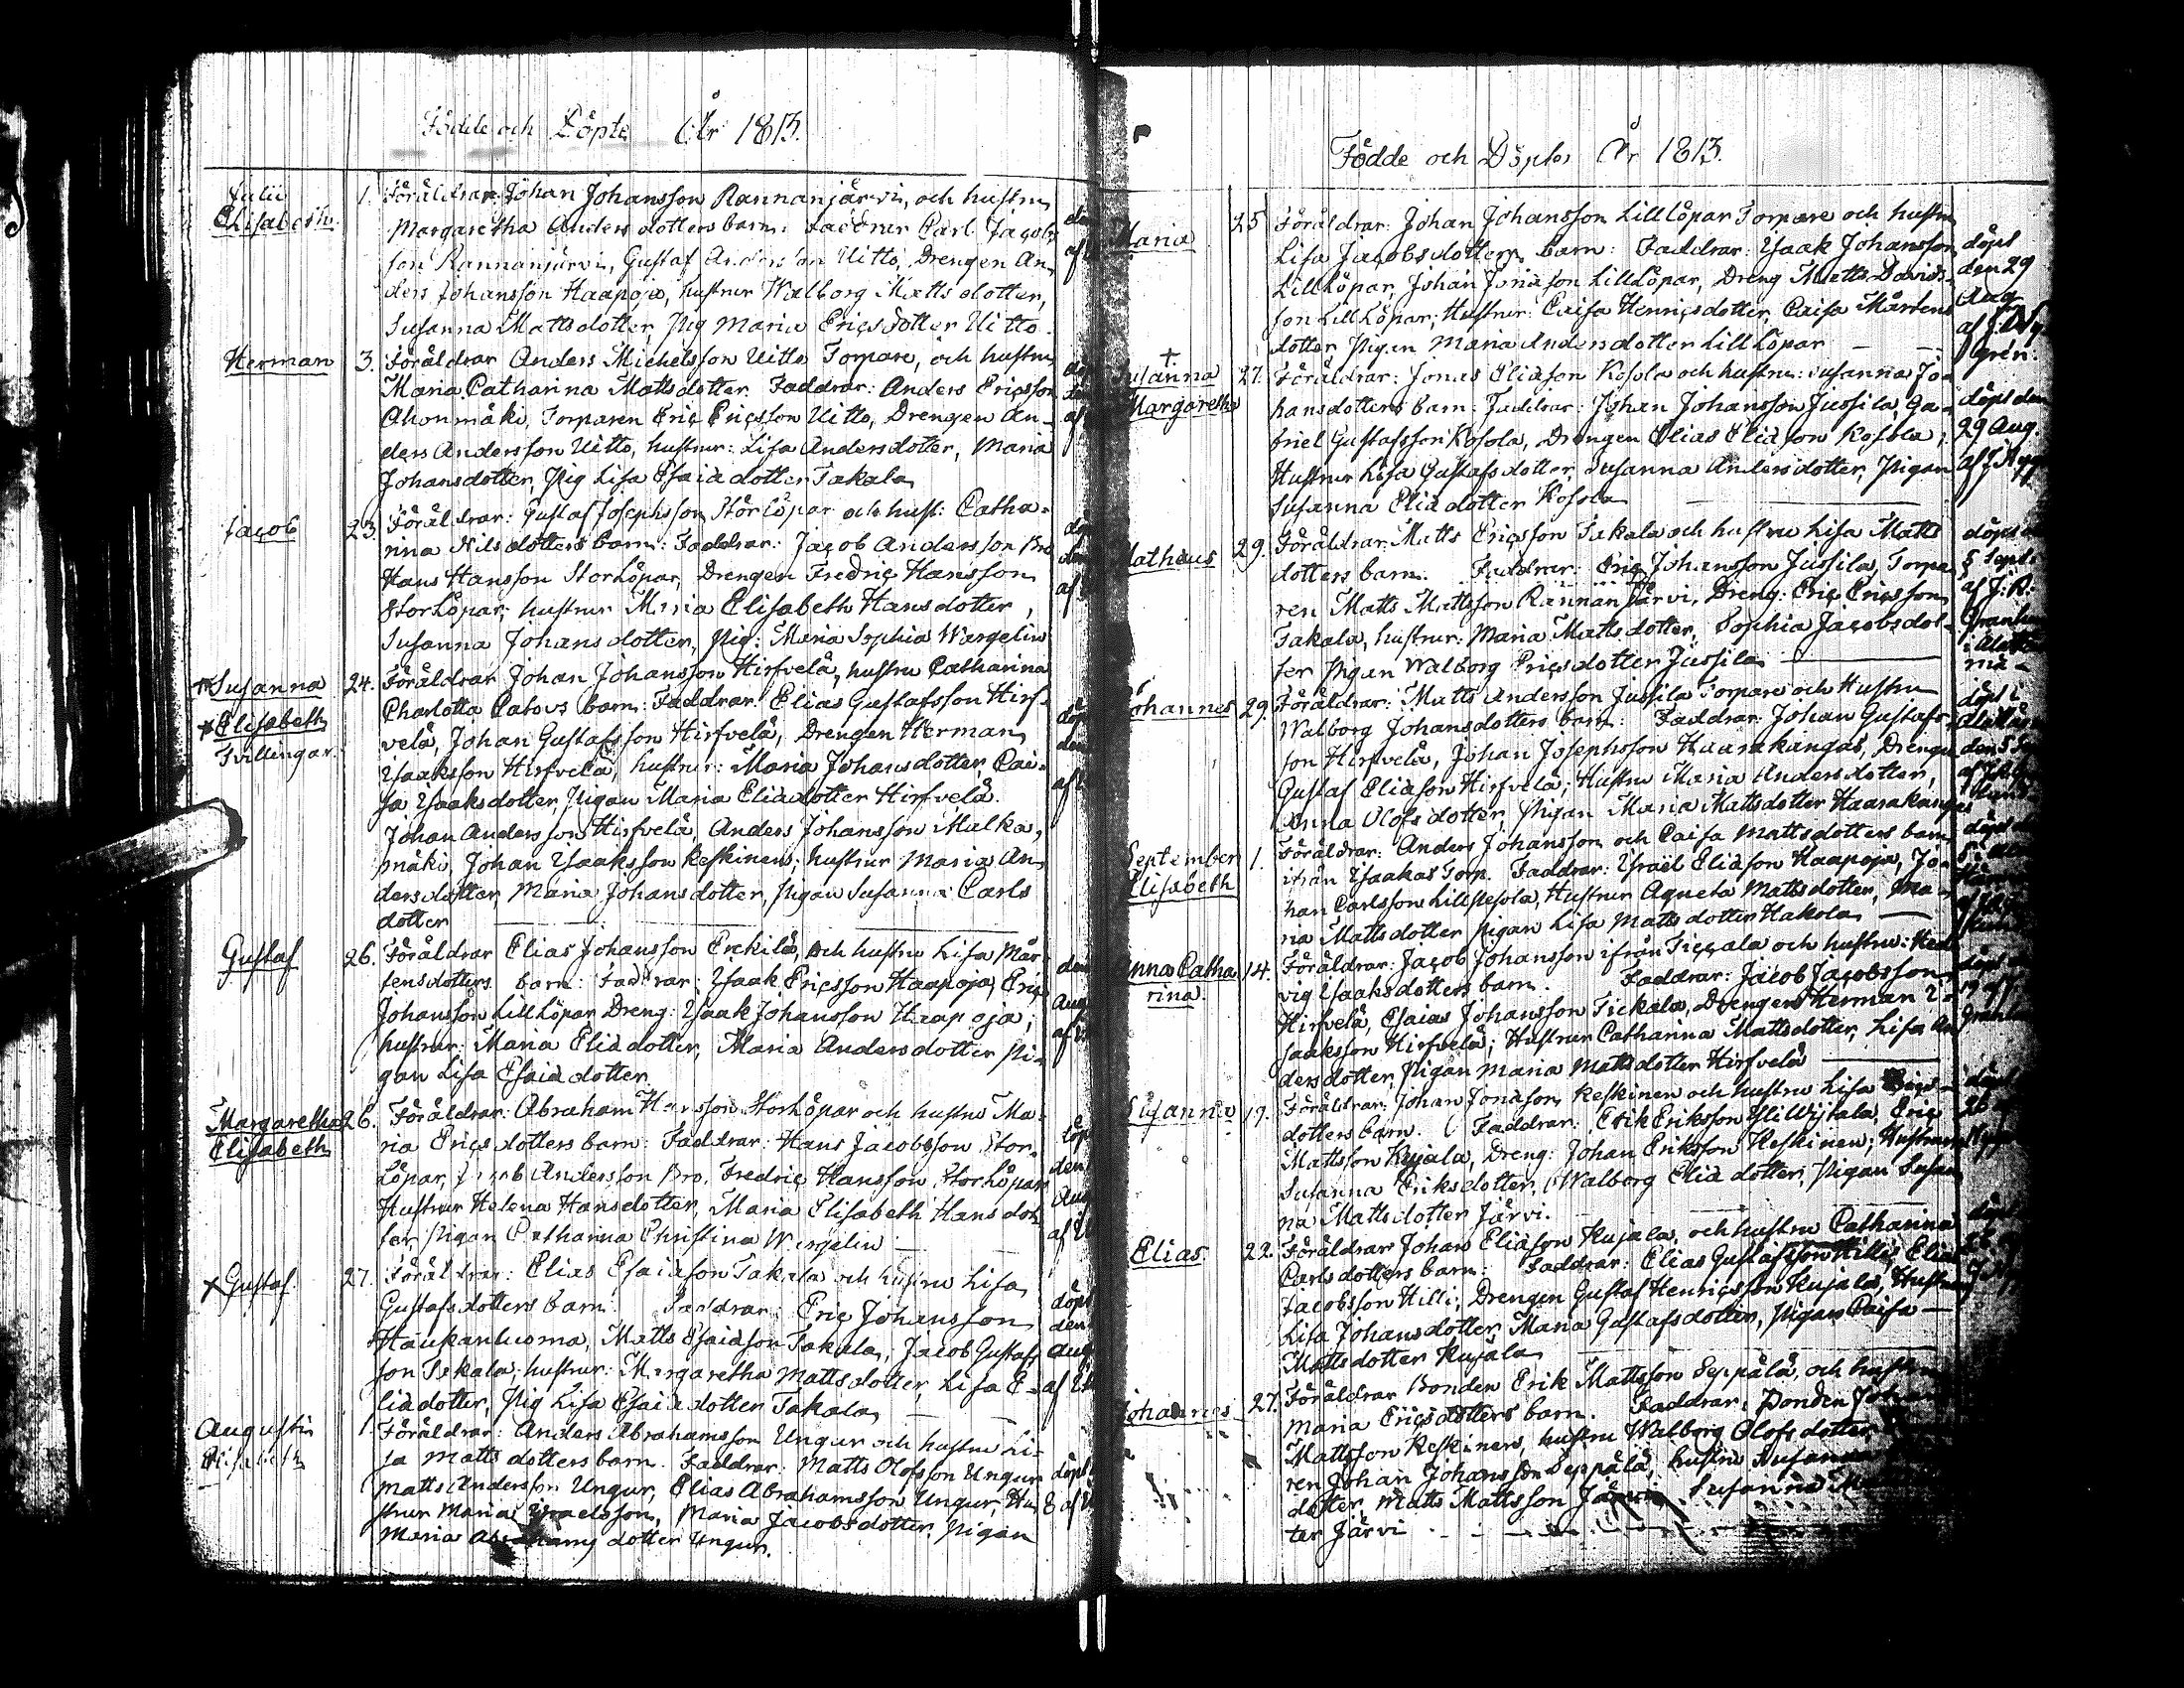 Födde och Döpte År 1813.
Julii
Elisabeth. 1. Föräldrar: Johan Johansson Rannanjärvi, och hustru
Margaretha Anders dotters barn: Faddrar Carl Jacobs
son Rannanjärvi, Gustaf Andersson Uitto, Drengen An
ders Johansson Haapoja, hustrur Walborg Matts dotter,
Susanna Mattsdotter, Pig Maria Ericsdotter Uitto.
Herman 3. Föräldrar Anders Michelsson Uitto Torpare, och hustru
Maria Catharina Mattsdotter. Faddrar: Anders Ericsson
Ahonmäki, Torparen Eric Ericsson Uitto, Drengen An-
ders Andersson Uitto, hustrur: Lisa Andersdotter, Maria
Johansdotter, Pig Lisa Esaiadotter Takala
Jacob 23. Föräldrar: Gustaf Josephsson Storlöpar och hust: Catha-
rina Nilsdotters barn: Faddrar: Jacob Andersson Bro
Hans Hansson Storlöpar, Drengen Fredric Hansson
Storlöpar; hustrur Maria Elisabeth Hansdotter,
Susanna Johansdotter, Pig: Maria Sophia Wargelin
Susanna 24. Föräldrar Johan Johansson Hirsvelä, hustru Catharina
Elisabeth Charlotta barn: Faddrar: Elias Gustafsson Hirs-
Tvillingar. velä, Johan Gustafsson Hirsvelä, Drengen Herman
Ysaaksson Hirsvelä, hustrur: Maria Johansdotter, Cai-
sa Ysaaksdotter, Pigan Maria Eliadotter Hirsvelä.
Johan Andersson Hirsvelä, Anders Johansson Mulka,
mäki, Johan Ysaaksson Keskinen; hustrur Maria An
dersdotter, Maria Johansdotter, Pigan Susanna Carls
dotter
Gustaf 26. Föräldrar Elias Johansson Erckilä, och hustru Lisa Mår
tensdotters barn: Faddrar: Ysaak Ericsson Haapoja, Eric
Johansson Lill Löpar, Dreng: Ysaak Johansson Haapoja;
hustrur: Maria Eliadotter, Maria Andersdotter Pi-
gan Lisa Esaiadotter
Margaretha 26. Föräldrar: Abraham Hansson Storlöpar och hustru Ma-
Elisabeth ria Ericsdotters barn: Faddrar: Hans Jacobsson Stor-
Löpar, Jacob Andersson Bro, Fredric Hansson Storlöpar
Hustrur Helena Hansdotter, Maria Elisabeth Hansdot
ter, Pigan Catharina Christina Wargelin
Gustaf. 27. Föräldrar: Elias Esaiason Takala och hustru Lisa
Gustafsdotters barn. Faddrar: Eric Johansson
Haukanluoma, Matts Esaiason Takala, Jacob Gustafs
son Takala; hustrur: Margaretha Mattsdotter, Lisa E-
liadotter, Pig Lisa Esaiadotter Takala
Augusti 1. Föräldrar: Anders Abrahamsson Ungur och hustru Li-
Elisabeth sa Mattsdotters barn. Faddrar: Matts Olofsson Ungur
Matts Andersson Ungur, Elias Abrahamsson Ungur, Hu
strur Maria Ysraelsson, Maria Jacobsdotter, Pigan
Maria Abrahams dotter Ungur.
Födde och Döpte År 1813.
Maria 25 Föräldrar: Johan Johansson Lill Löpar Torpare och hustru
Lisa Jacobsdotters barn: Faddrar: Ysaak Johansson döpt
Lill Löpar, Johan Jonason Lill Löpar, Dreng Matts Davids- den 29
son Lill Löpar; Hustrur: Caisa Henricsdotter, Caisa Mårtens Aug
dotter Pigan Maria Andersdotter Lill Löpar
Susanna 27. Föräldrar: Jonas Eliason Kosola och hustru: Susanna Jo-
Margaretha hansdotters barn: Faddrar: Johan Johansson Jussila, Ga- döpt den
briel Gustafsson Kosola, Drengen Elias Eliason Kosola; 29 Aug.
Hustrur Lisa Gustafsdotter, Susanna Andersdotter, Pigan
Susanna Eliadotter Kosola
Matheus 29. Föräldrar: Matts Ericsson Takala och hustru Lisa Matts döpt
dotters barn. Faddrar: Eric Johansson Jussila, Torpa 5 Sept.
ren Matts Mattsson Rannanjärvi, Dreng: Eric Ericsson af J. R.
Takala, hustrur: Maria Mattsdotter, Sophia Jacobsdot-
ter Pigan Walborg Ericsdotter Jussila
Johannes 29. Föräldrar: Matts Andersson Jussila Torpare och Hustru döpt i
Walborg Johansdotters barn: Faddrar: Johan Gustafs-
son Hirsvelä, Johan Josephsson Haarakangas, Drengen
Gustaf Eliason Hirsvelä; Hustru Maria Andersdotter,
Anna Olofsdotter, Pigan Maria Mattsdotter Haarakangas
September 1. Föräldrar: Anders Johansson och Caisa Mattsdotters barn
Elisabeth ifrån Ysaakas Torp. Faddrar: Ysrael Eliason Haapoja, Jo-
han Carlsson Lillpesola, Hustrur Agneta Mattsdotter, Ma-
ria Mattsdotter Pigan Lisa Mattsdotter Hakola
Anna Catha 14. Föräldrar: Jacob Johansson ifrån Ticcala och hustru: Hed
rina. vig Ysaaksdotters barn. Faddrar: Jacob Jacobsson
Hirsvelä, Esaias Johansson Tickala, Drengen Herman Y-
saaksson Hirsvelä; Hustrur Catharina Mattsdotter, Lisa An
dersdotter, Pigan Maria Mattsdotter Hirsvelä
Susanna 19. Föräldrar: Johan Jonason Keskinen och hustru Lisa
dotters barn. Faddrar: Erik Eriksson Ylli Wijtala, Eric
Mattsson Kujala, Dreng: Johan Eriksson Keskinen; Hustrur
Susanna Eriksdotter, Walborg Eliadotter, Pigan Susan
na Mattsdotter Järvi.
Elias 22. Föräldrar Johan Eliason Kujala, och hustru Catharina
Carlsdotters barn: Faddrar: Elias Gustafsson Hilli, Elias
Jacobsson Hilli; Drengen Gustaf Henricsson Kujala, Hustrur
Lisa Johansdotter, Maria Gustafsdotter, Pigan Caisa
Mattsdotter Kujala
Johannes 27. Föräldrar Bonden Erik Mattsson Seppälä, och hustru
Maria Ericsdotters barn. Faddrar: Bonden Johan
Mattsson Keskinen, hustru Walborg Olofsdotter
ren Johan Johansson Seppälä, hustru Susanna
dotter, Matts Mattsson Järvi Susanna
ter Järvi